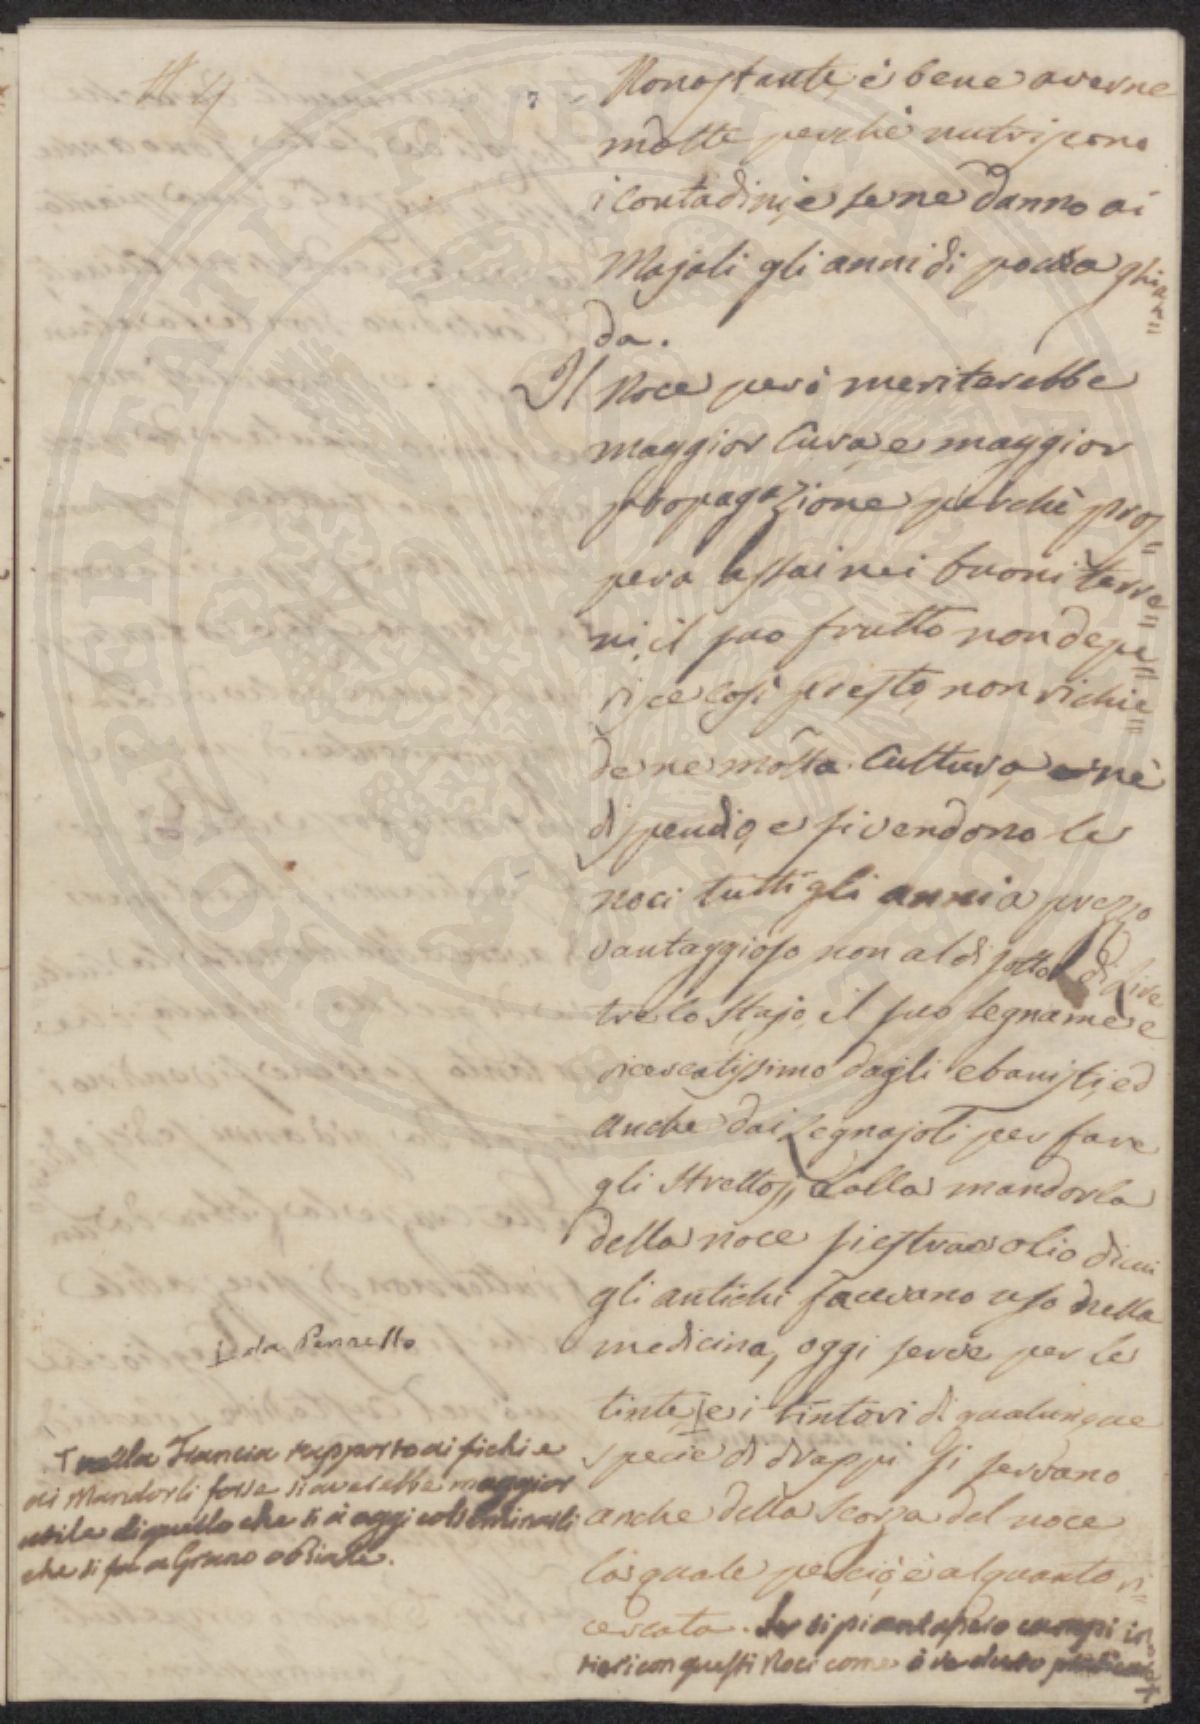 7
Nonostante è bene averne
molte perchè nutriscono
i Contadini, e se ne danno ai
Majali gli anni di poca ghian=
da.
Il Noce però meriterebbe
maggior Cura, e maggior
propagazione perchè pros=
pera assai nei buoni terre=
ni, il suo frutto non depe=
risce così presto, non richie=
de ne molta Cultura, nè
dispendio, e si vendono le
noci tutti gli anni a prezzo
vantaggioso non al di sotto di Lire
tre lo Stajo, il suo legname è
ricercatissimo dagli ebanisti, ed
anche dai Legnajoli per fare
gli Strettoj, dalla mandorla
della noce si estrae olio di cui
gli antichi facevano uso nella
medicina, oggi serve per le
tinte, e i tintori di qualunque
specie di drappi si servano
anche della Scorza del noce
la quale perciò è alquanto ri=
cercata. Se si piantassero campi in=
tieri con questi Noci come è veduto praticare
da Pennello
nella Francia rapporto ai fichi e
ai Mandorli forse si averebbe maggior
utile di quello che si à oggi col seminarli
che si fa a Grano o Biade.
PVBLICAE VTILITATI